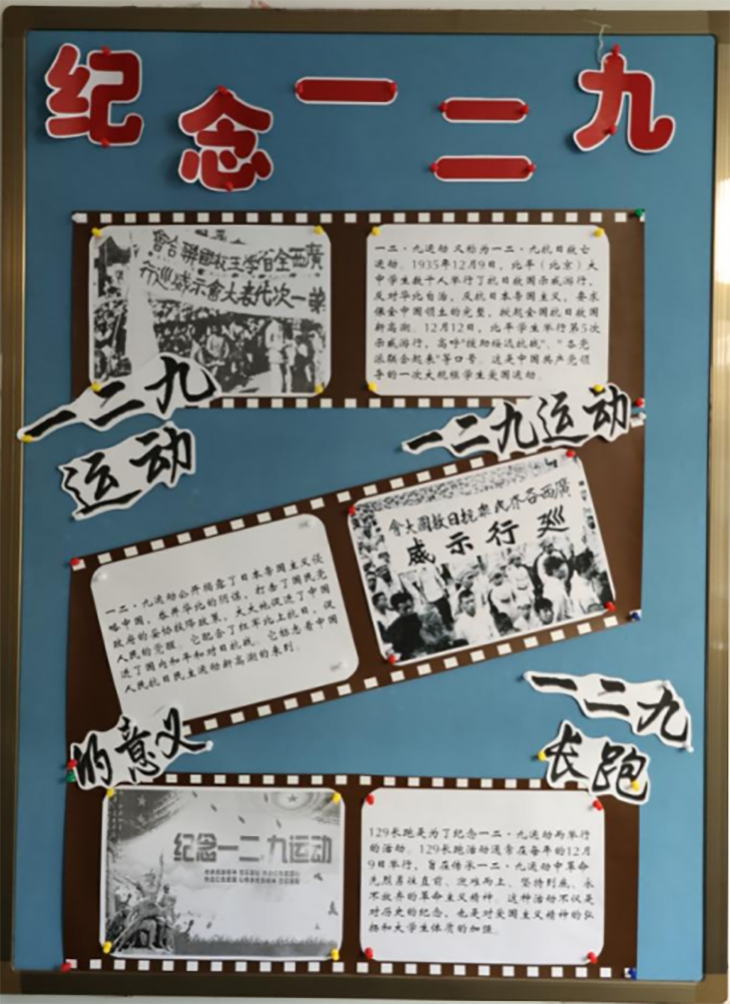 纪念一二九
廣西全省学生抗日救國聯合會
第一次代表大會示威巡行
一二·九运动 又称为一二·九抗日救亡
运动。1935年12月9日，北平（北京）大
中学生数千人举行了抗日救国示威游行，
反对华北自治，反抗日本帝国主义，要求
保全中国领土的完整，掀起全国抗日救国
新高潮。12月12日，北平学生举行第5次
示威游行，高呼“援助绥远抗战”、“各党
派联合起来”等口号。这是中国共产党领
导的一次大规模学生爱国运动。
一二九
运动
一二九运动
廣西各界民眾抗日救國大會
巡行示威
一二·九运动公开揭露了日本帝国主义侵
略中国，吞并华北的阴谋，打击了国民党
政府的妥协投降政策，大大地促进了中国
人民的觉醒。它配合了红军北上抗日，促
进了国内和平和对日抗战。它标志着中国
人民抗日民主运动新高潮的来到。
的意义
一二九
长跑
纪念一二·九运动
129长跑是为了纪念一二·九运动而举行
的活动。129长跑活动通常在每年的12月
9日举行，旨在传承一二·九运动中革命
先烈勇往直前、迎难而上、坚持到底、永
不放弃的革命主义精神。这种活动不仅是
对历史的纪念，也是对爱国主义精神的弘
扬和大学生体质的加强。